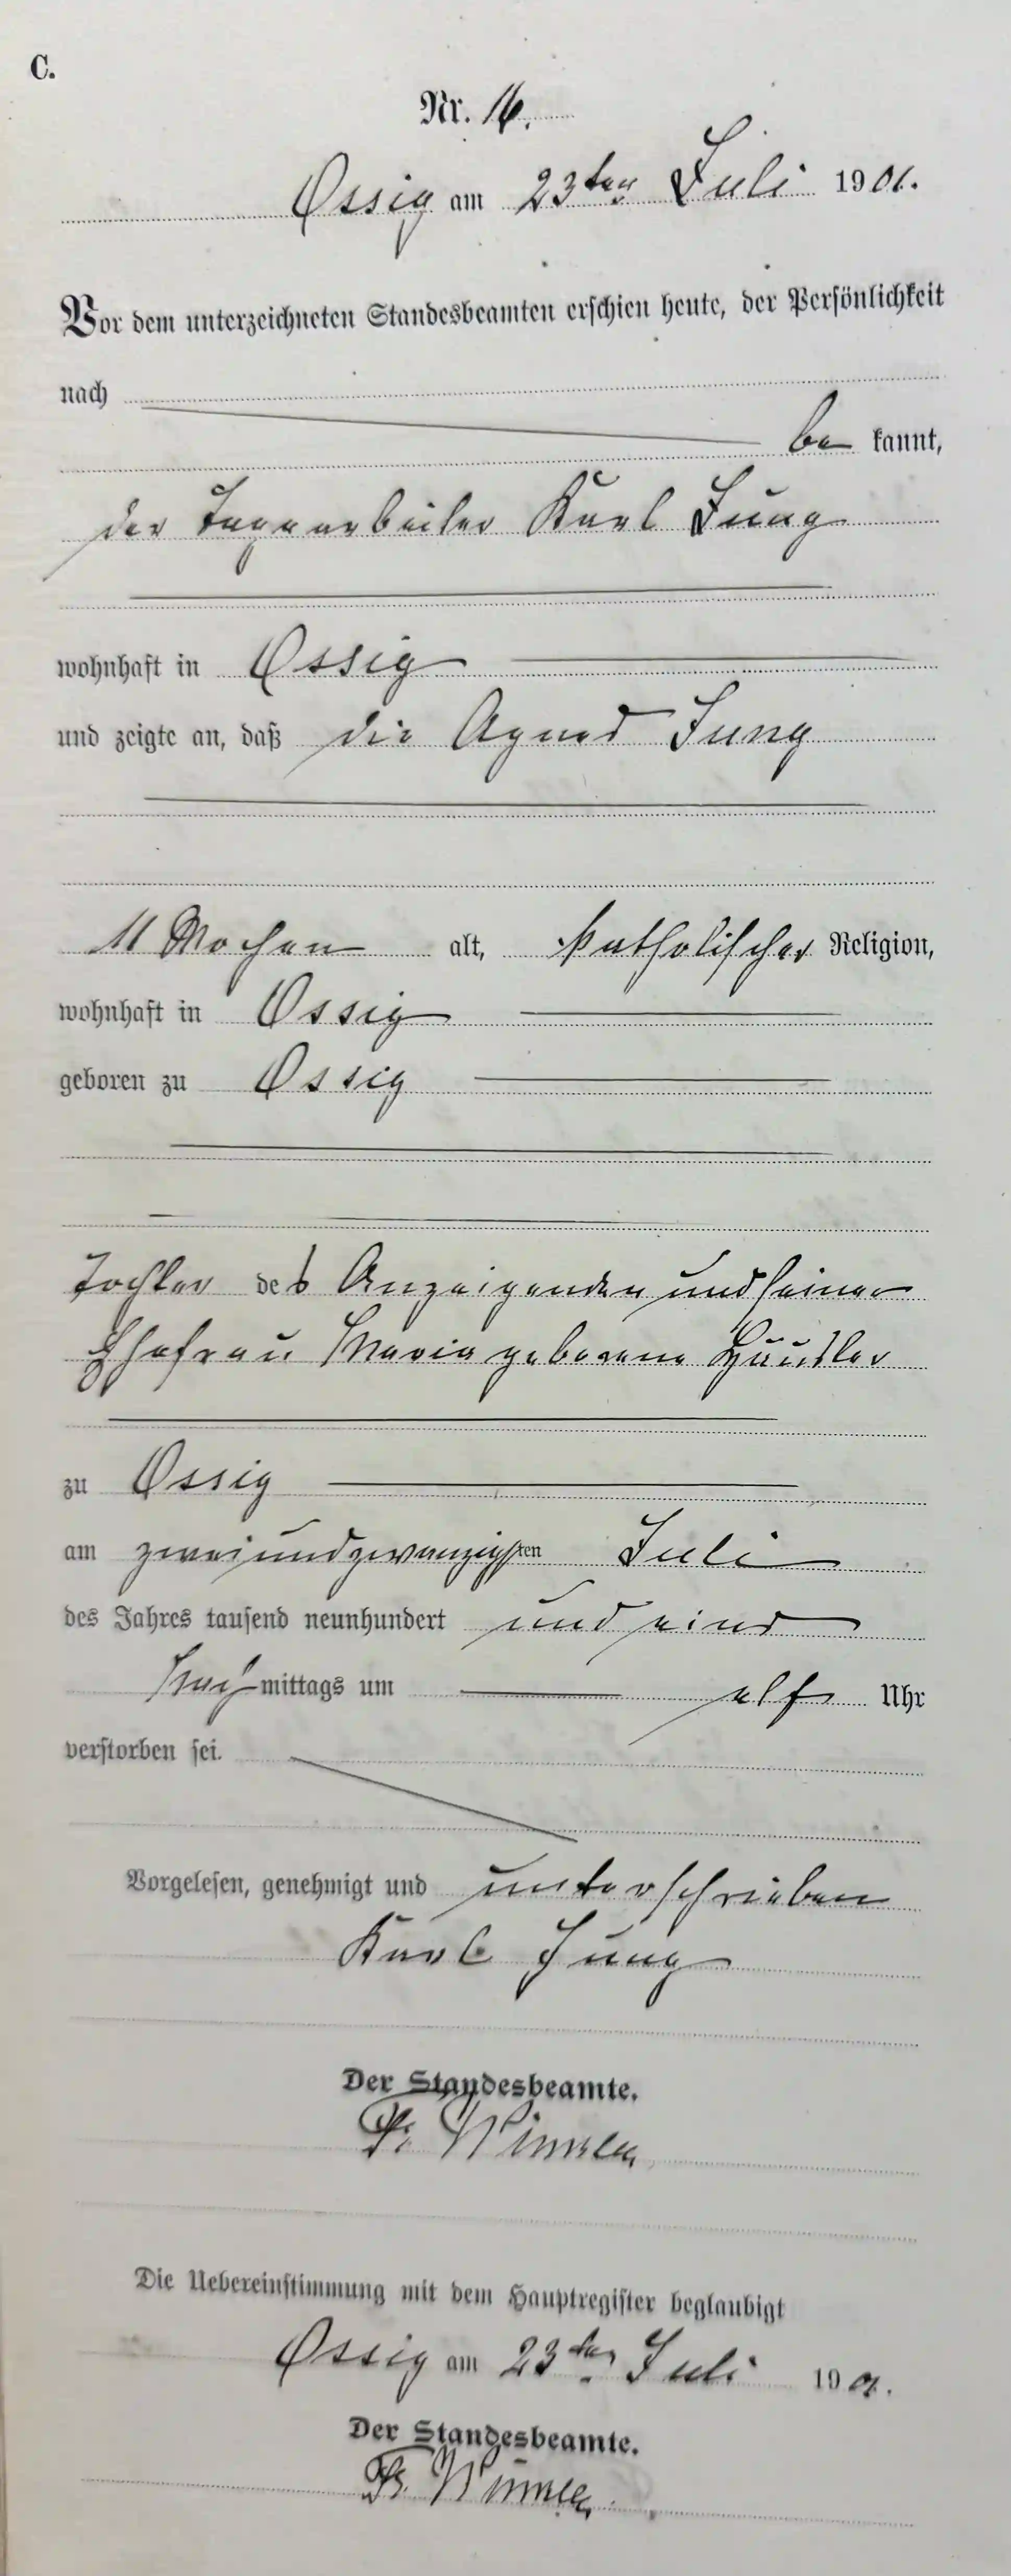 C.
Nr. 16.
Ossig am 23ten Juli 1901.
Vor dem unterzeichneten Standesbeamten erschien heute, der Persönlichkeit
nach
be kannt,
der Tagearbeiter Karl Jung
wohnhaft in Ossig
und zeigte an, daß die Agnes Jung
11 Wochen alt, katholischer Religion,
wohnhaft in Ossig
geboren zu Ossig
Tochter des Anzeigenden und seiner
Ehefrau Maria geborene Häusler
zu Ossig
am zweiundzwanzigsten Juli
des Jahres tausend neunhundert und eins
Nachmittags um elf Uhr
verstorben sei.
Vorgelesen, genehmigt und unterschrieben
Karl Jung
Der Standesbeamte.
Die Uebereinstimmung mit dem Hauptregister beglaubigt
Ossig am 23ten Juli 1901.
Der Standesbeamte.